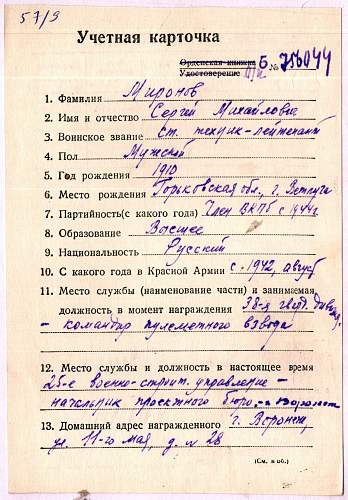 57/9
Учетная карточка
Орденская книжка Б № 758044
Удостоверение
1. Фамилия Миронов
2. Имя и отчество Сергей Михайлович
3. Воинское звание Ст. техник-лейтенант
4. Пол Мужской
5. Год рождения 1910
6. Место рождения Горьковская обл., г. Ветлуга
7. Партийность (с какого года) Член ВКПб с 1944г
8. Образование Высшее
9. Национальность Русский
10. С какого года в Красной Армии с 1942, август
11. Место службы (наименование части) и занимаемая
должность в момент награждения 38-я гвард. дивиз.
- командир пулеметного взвода
12. Место службы и должность в настоящее время
25-е военно-строит. управление -
начальник проектного бюро, г. Воронеж
13. Домашний адрес награжденного г. Воронеж,
ул. 11-го мая, д. № 28
(См. н об.)